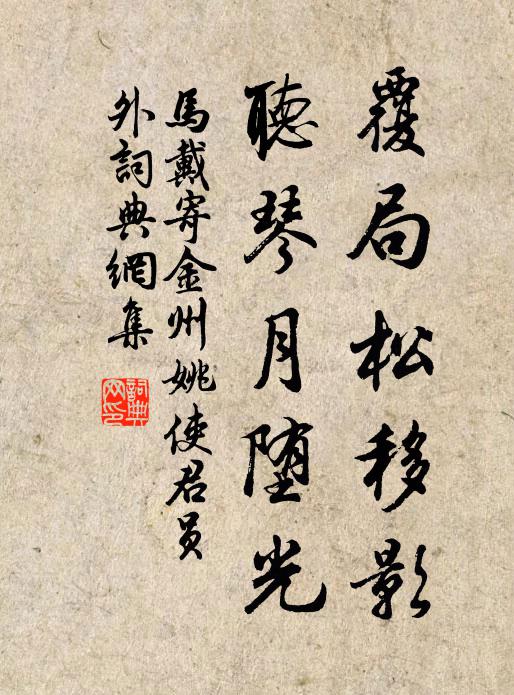 覆局松移影
聽琴月堕光
馬戴寄金州姚使君員
外詞典網集
詞典網印